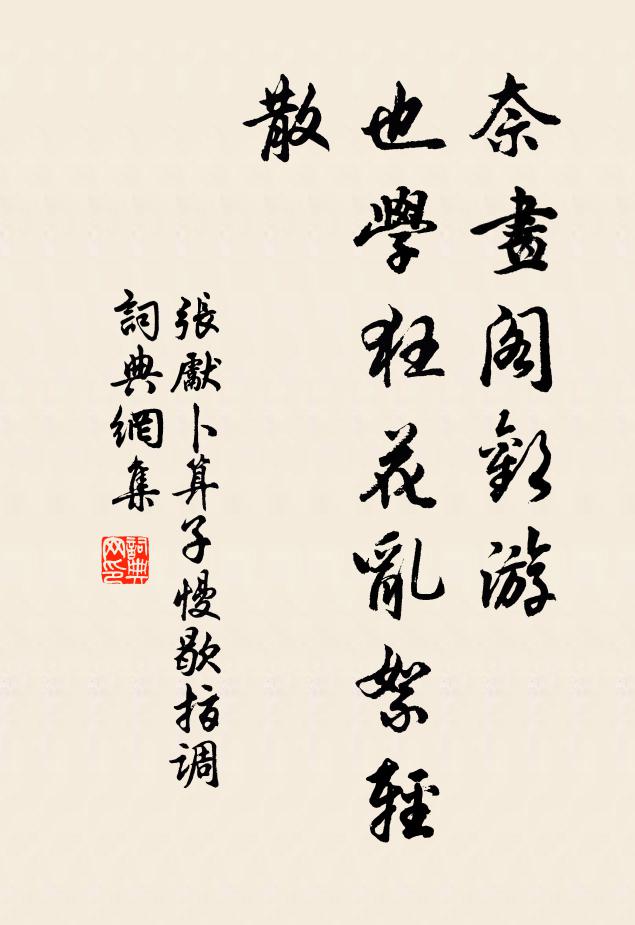 奈畫閣歡游
也學狂花亂絮輕
散
張獻卜算子慢歇指調
詞典網集
詞典
网印